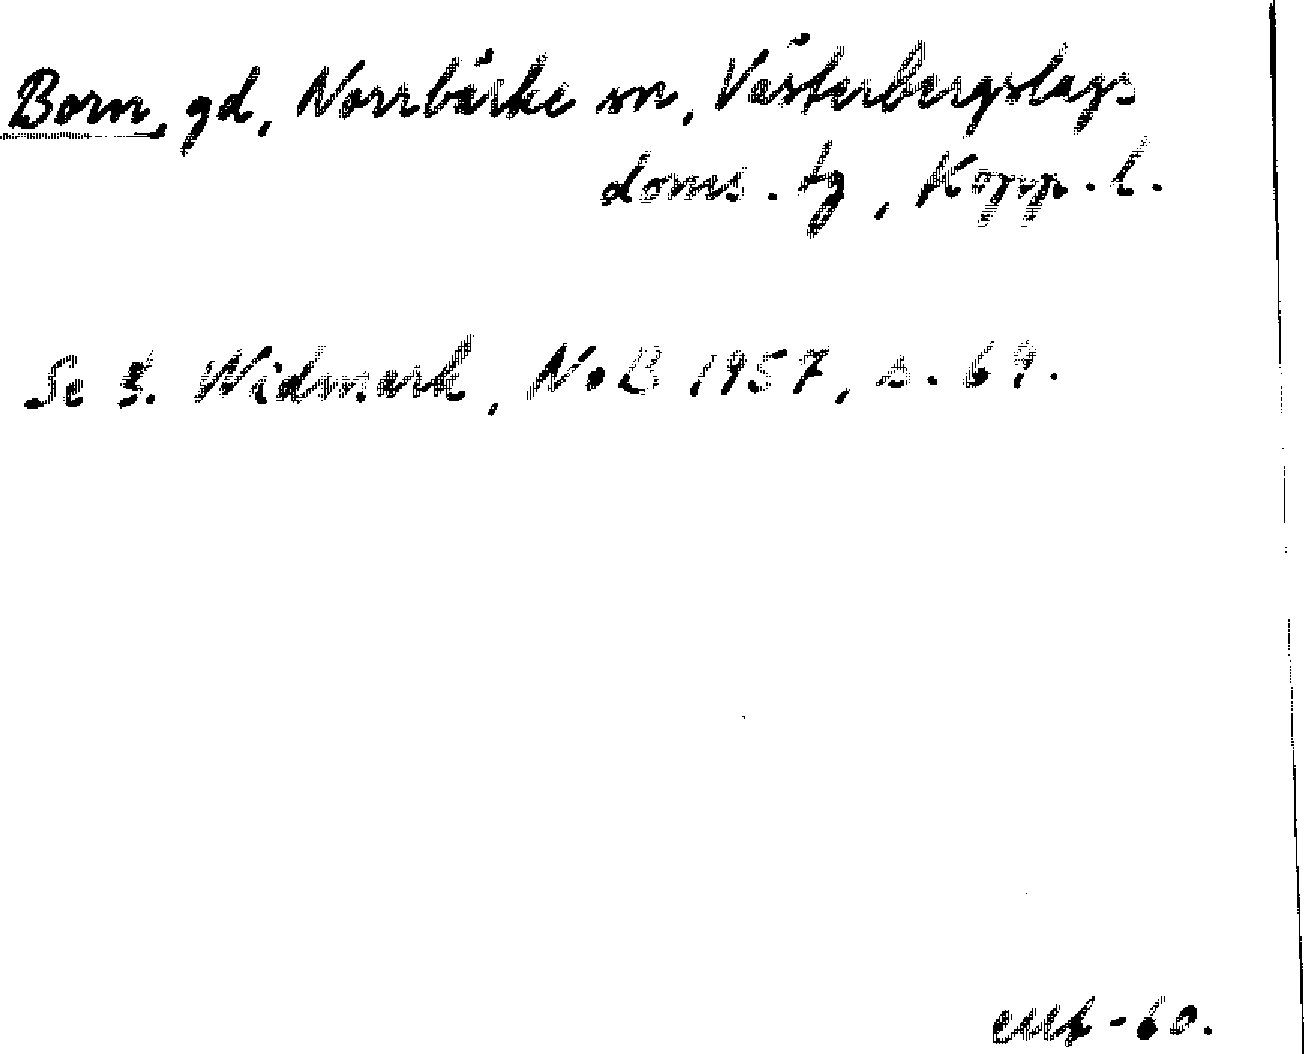 Born, gd, Norrbärke sn, Västerbergslags
doms. tg, Kopp. l.
Se G. Widmark, NoB 1957, s. 69.